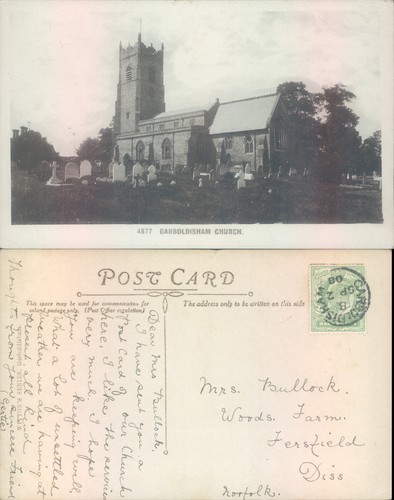 4877 GARBOLDISHAM CHURCH.
POST CARD
This space may be used for communication for
inland postage only. (Post Office regulation)
The address only to be written on this side
GARBOLDISHAM
8
SP 2
08
Dear Mrs Bullock.
I have sent you a
Post Card of our Church
here, I like the service
very much. I hope
you are keeping well
What a Lot of unsettled
weather we are having at
present, all kind
Thoughts from your sincere Friend
Gertie
Mrs. Bullock.
Woods. Farm.
Fersfield
Diss
Norfolk.